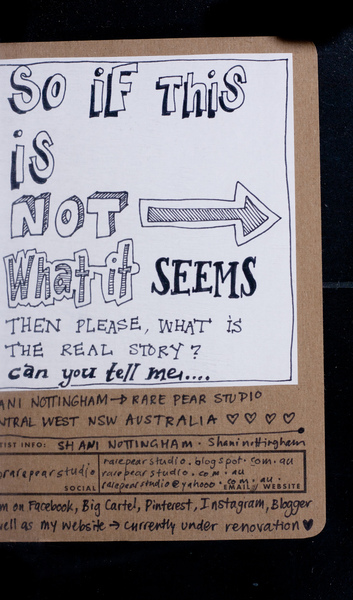 So iF This
is
NOT
What it SEEMS
THEN PLEASE, WHAT IS
THE REAL STORY?
can you tell me....
ANI NOTTINGHAM → RARE PEAR STUDIO
NTRAL WEST NSW AUSTRALIA ♡ ♡ ♡ ♡
TIST INFO: SHANI NOTTINGHAM · Shaninottingham
rarepearstudio
rarepearstudio.blogspot.com.au
rarepearstudio.com.au
rarepearstudio@yahooo.com.au.
SOCIAL EMAIL / WEBSITE
m on Facebook, Big Cartel, Pinterest, Instagram, Blogger
well as my website → currently under renovation ♥